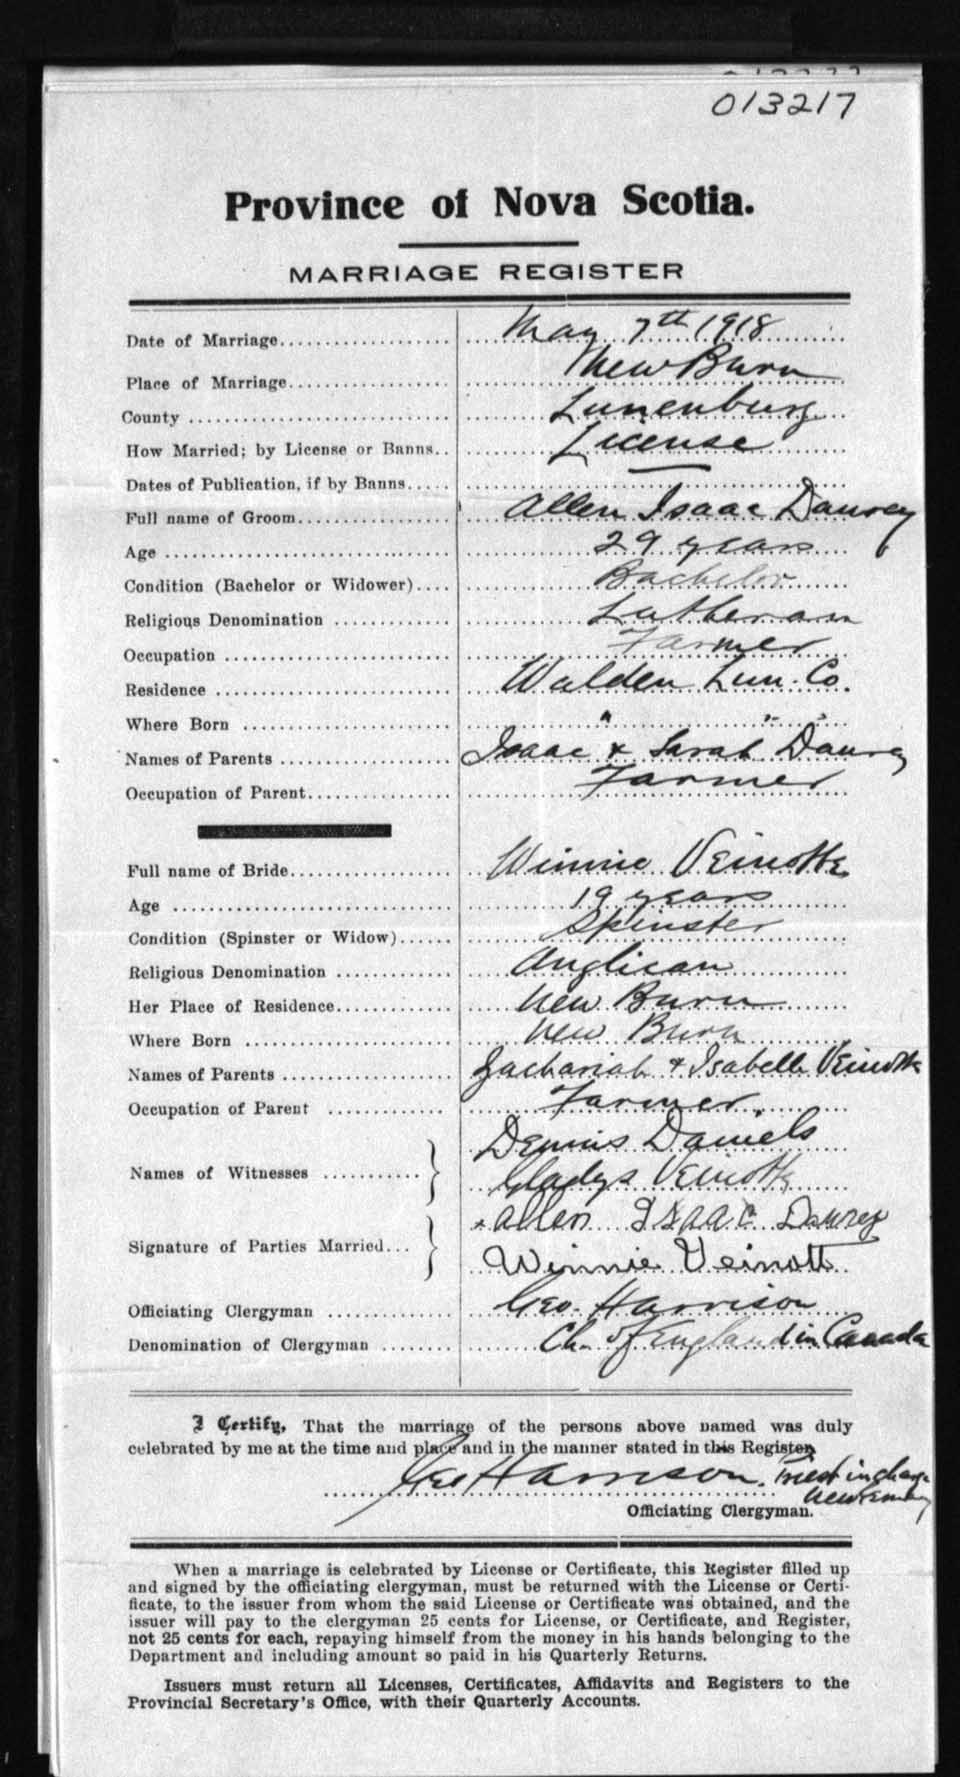 013217
Province of Nova Scotia.
MARRIAGE REGISTER
Date of Marriage May 7th 1918
Place of Marriage New Burn
County Lunenburg
How Married; by License or Banns.. License
Dates of Publication, if by Banns —
Full name of Groom Allen Isaac Daurey
Age 29 years
Condition (Bachelor or Widower) Bachelor
Religious Denomination Lutheran
Occupation Farmer
Residence Walden Lun. Co.
Where Born " " "
Names of Parents Isaac & Sarah Daurey
Occupation of Parent Farmer
Full name of Bride Winnie Veinotte
Age 19 years
Condition (Spinster or Widow) Spinster
Religious Denomination Anglican
Her Place of Residence New Burn
Where Born New Burn
Names of Parents Zachariah & Isabelle Veinotte
Occupation of Parent Farmer
Names of Witnesses Dennis Daniels
Gladys Veinotte
Signature of Parties Married Allen Isaac Daurey
Winnie Veinott
Officiating Clergyman Geo. Harrison
Denomination of Clergyman Ch. of England in Canada
I Certify, That the marriage of the persons above named was duly
celebrated by me at the time and place and in the manner stated in this Register.
Geo Harrison. Priest in charge
New Germany
Officiating Clergyman.
When a marriage is celebrated by License or Certificate, this Register filled up
and signed by the officiating clergyman, must be returned with the License or Certi-
ficate, to the issuer from whom the said License or Certificate was obtained, and the
issuer will pay to the clergyman 25 cents for License, or Certificate, and Register,
not 25 cents for each, repaying himself from the money in his hands belonging to the
Department and including amount so paid in his Quarterly Returns.
Issuers must return all Licenses, Certificates, Affidavits and Registers to the
Provincial Secretary's Office, with their Quarterly Accounts.